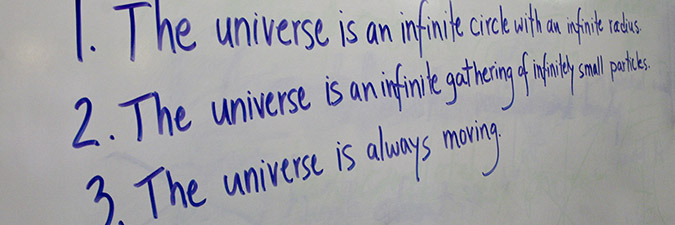 1. The universe is an infinite circle with an infinite radius.
2. The universe is an infinite gathering of infinitely small particles.
3. The universe is always moving.